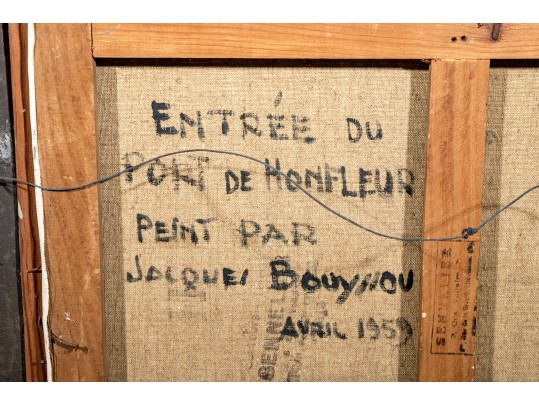 ENTRÉE DU
PORT DE HONFLEUR
PEINT PAR
JACQUES BOUYSSOU
AVRIL 1959
SENNELIER